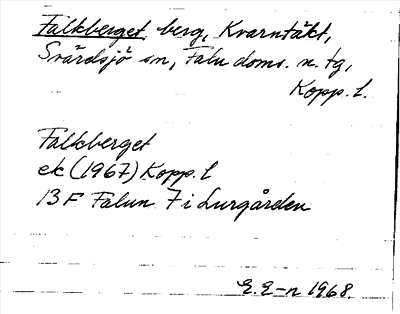 Falkberget, berg, Kvarntäkt,
Svärdsjö sn, Falu doms. n. tg,
Kopp. l.
Falkberget
ek (1967) Kopp. l
13 F Falun 7 i Lurgården
E. E-n 1968.